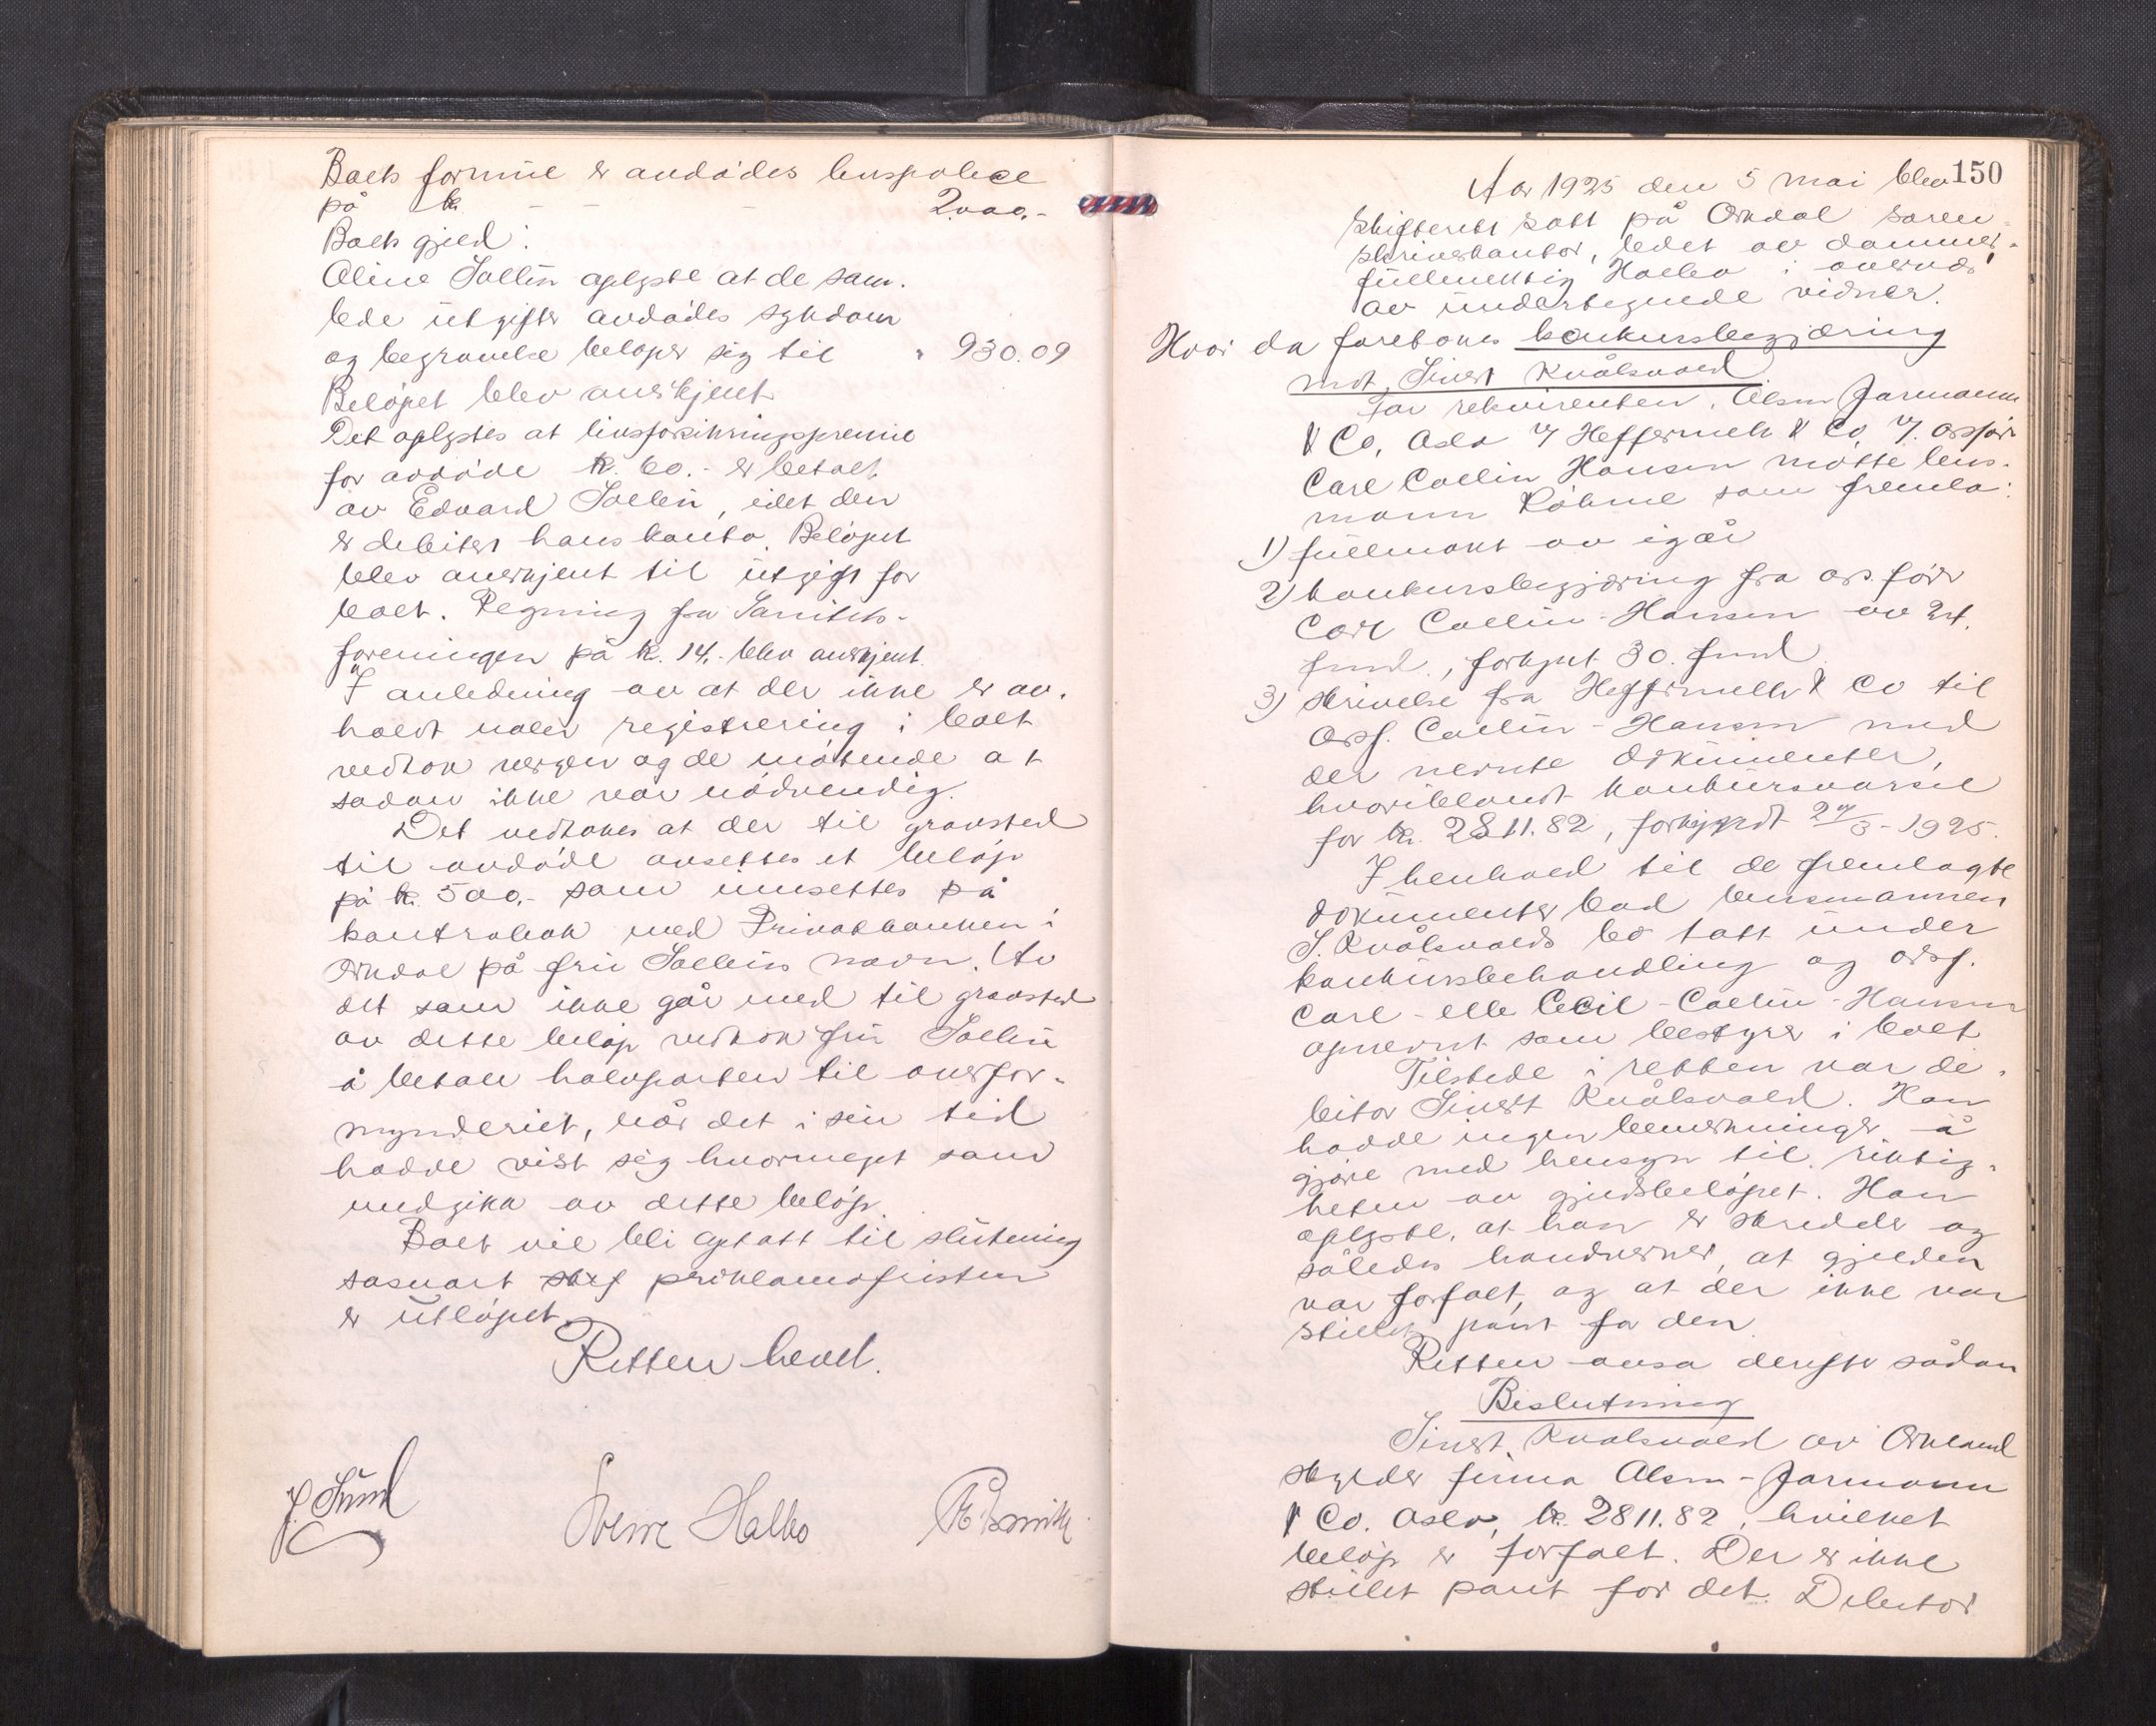 Boets formue er avdødes livspolice
på kr. - - - 2.000.-
Boets gjeld:
Oline Sollin oplyste at de sam-
lede utgifter avdødes sykdom
og begravelse beløper sig til " 930.09
Beløpet blev anerkjent.
Det oplystes at livsforsikringspremie
for avdøde kr. 60.- er betalt
av Edvard Sollin, idet den
er debitert hans konto. Beløpet
blev anerkjent til utgift for
boet. Regning fra Sanitets-
foreningen på kr. 14.- blev anerkjent.
I anledning av at der ikke er av-
holdt noen registrering i boet
vedtok vergen og de møtende at
sadan ikke var nødvendig.
Det vedtokes at der til gravsted
til avdøde avsettes et beløp
på kr. 500.- som innsettes på
kontrabok med Privatbanken i
Orkdal på fru Sollins navn. Av
det som ikke går med til gravsted
av dette beløp vedtok fru Sollin
å betale halvparten til overfor-
mynderiet, når det i sin tid
hadde vist sig hvormeget som
medgikk av dette beløp.
Boet vil bli optatt til slutning
sasnart proklamafristen
er utløpet.
Retten hevet.
J. Sund Sverre Halbo
150
Aar 1925 den 5 mai blev
skifterett satt på Orkdal soren-
skriverkontor, ledet av dommer-
fullmektig Halbo i overvær
av undertegnede vidner.
Hvor da foretokes konkursbegjæring
mot Sivert Kvålsvold
For rekvirenten, Olsen Jarmann
& Co, Oslo v/ Heffermehl & Co, v/ orsfør.
Carl Collin Hansen møtte lens-
mann Røhme som fremla:
1) fullmakt av igår
2) konkursbegjæring fra ors.fører
Carl Collin-Hansen av 24.
f.md., forkynt 30. f.md.
3) skrivelse fra Heffermehl & Co til
Orsf. Collin-Hansen med
der nevnte dokumenter,
hvoriblandt konkursvarsel
for kr. 2811.82, forkynt 24/3-1925.
I henhold til de fremlagte
dokumenter bad lensmannen
S. Kvålsvolds bo tatt under
konkursbehandling og orsf.
Carl-elle Cecil-Collin-Hansen
opnevnt som bestyrer i boet
Tilstede i retten var de-
bitor Sivert Kvålsvold. Han
hadde ingen bemerkninger å
gjøre med hensyn til riktig-
heten av gjeldsbeløpet. Han
oplyste, at han er skredder og
således handverker, at gjelden
var forfalt, og at der ikke var
stillet pant for den.
Retten avsa derefter sådan
Beslutning
Sivert Kvalsvold av Orkland
skylder firma Olsen-Jarmann
& Co. Oslo, kr. 2811.82, hvilket
beløp er forfalt. Der er ikke
stillet pant for det. Debitor